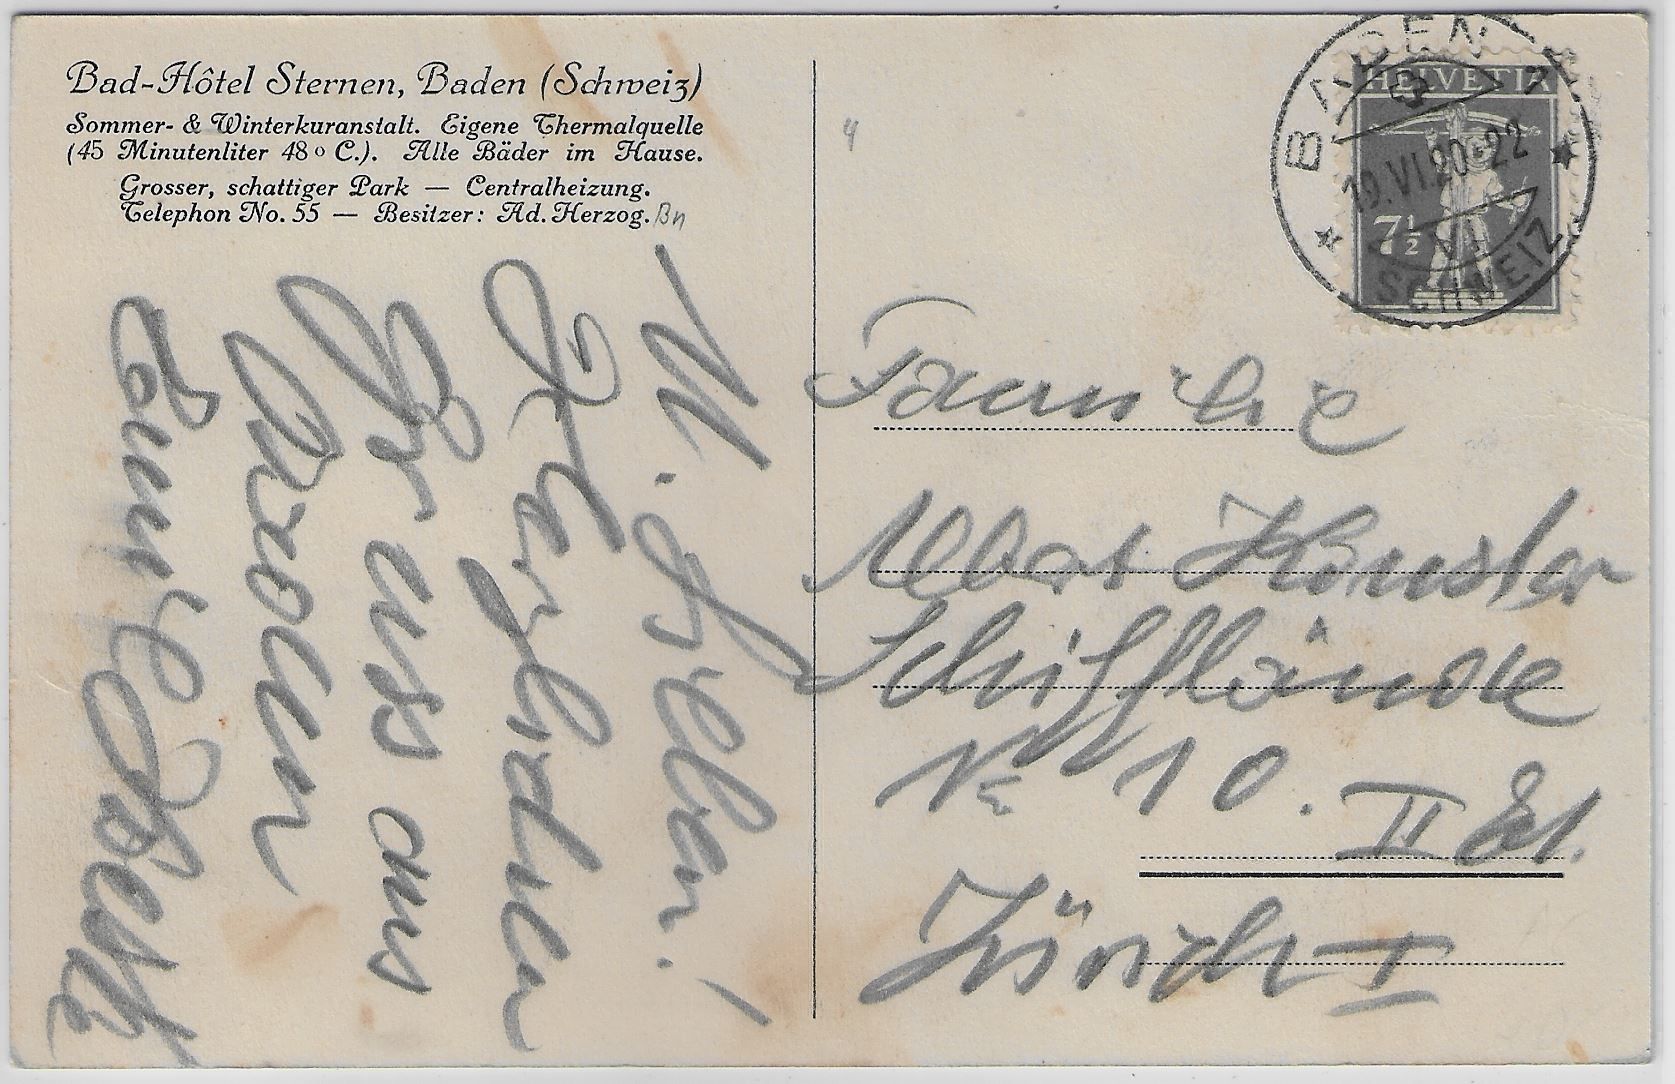 Bad-Hôtel Sternen, Baden (Schweiz)
Sommer- & Winterkuranstalt. Eigene Thermalquelle
(45 Minutenliter 48° C.). Alle Bäder im Hause.
Grosser, schattiger Park — Centralheizung.
Telephon No. 55 — Besitzer: Ad. Herzog.
M. Lieben!
Herzlichen
Gruss aus
Baden
BADEN
19.VI.20-22
SCHWEIZ
HELVETIA
7½
Familie
Albert
Schifflände
No 10. II Et.
Zürich I